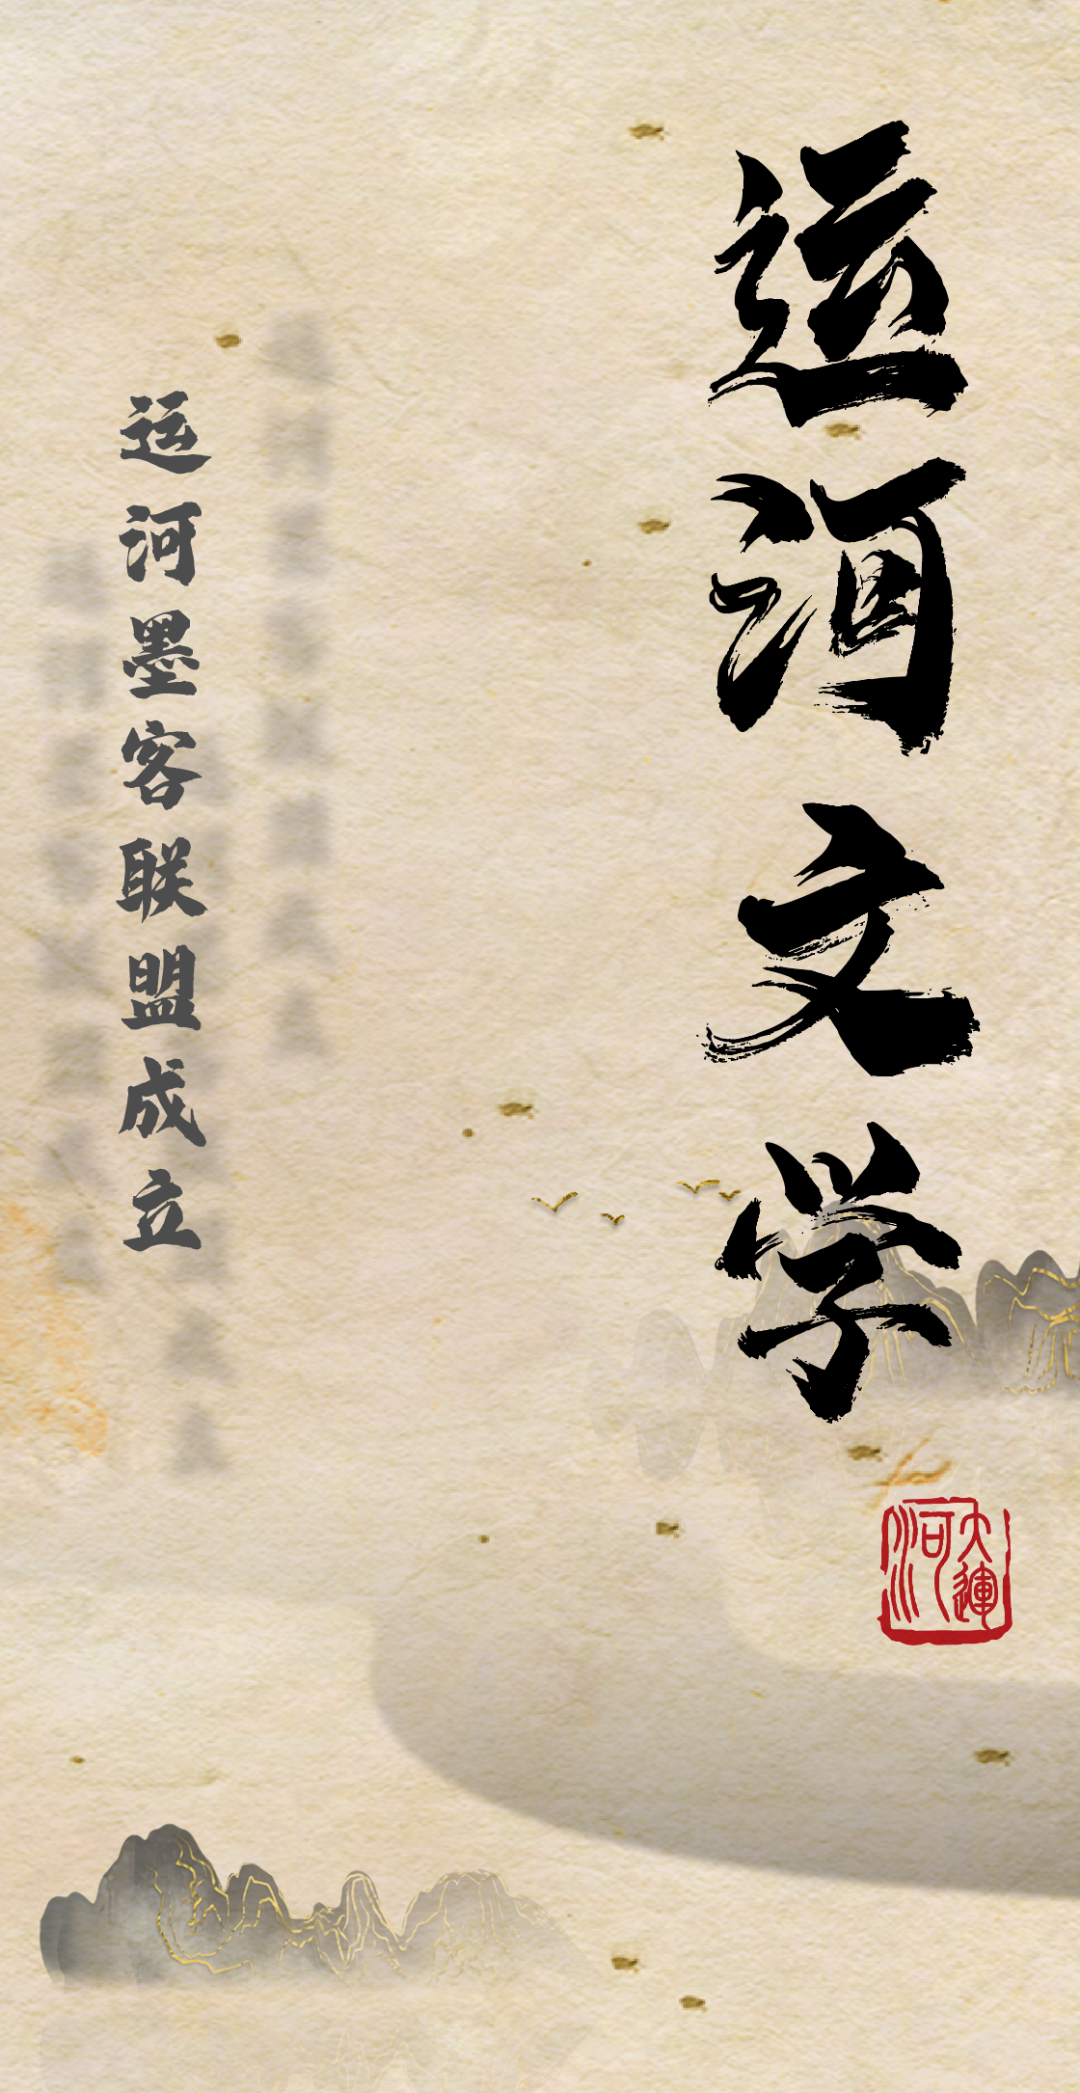 运河文学
大運河
运河墨客联盟成立